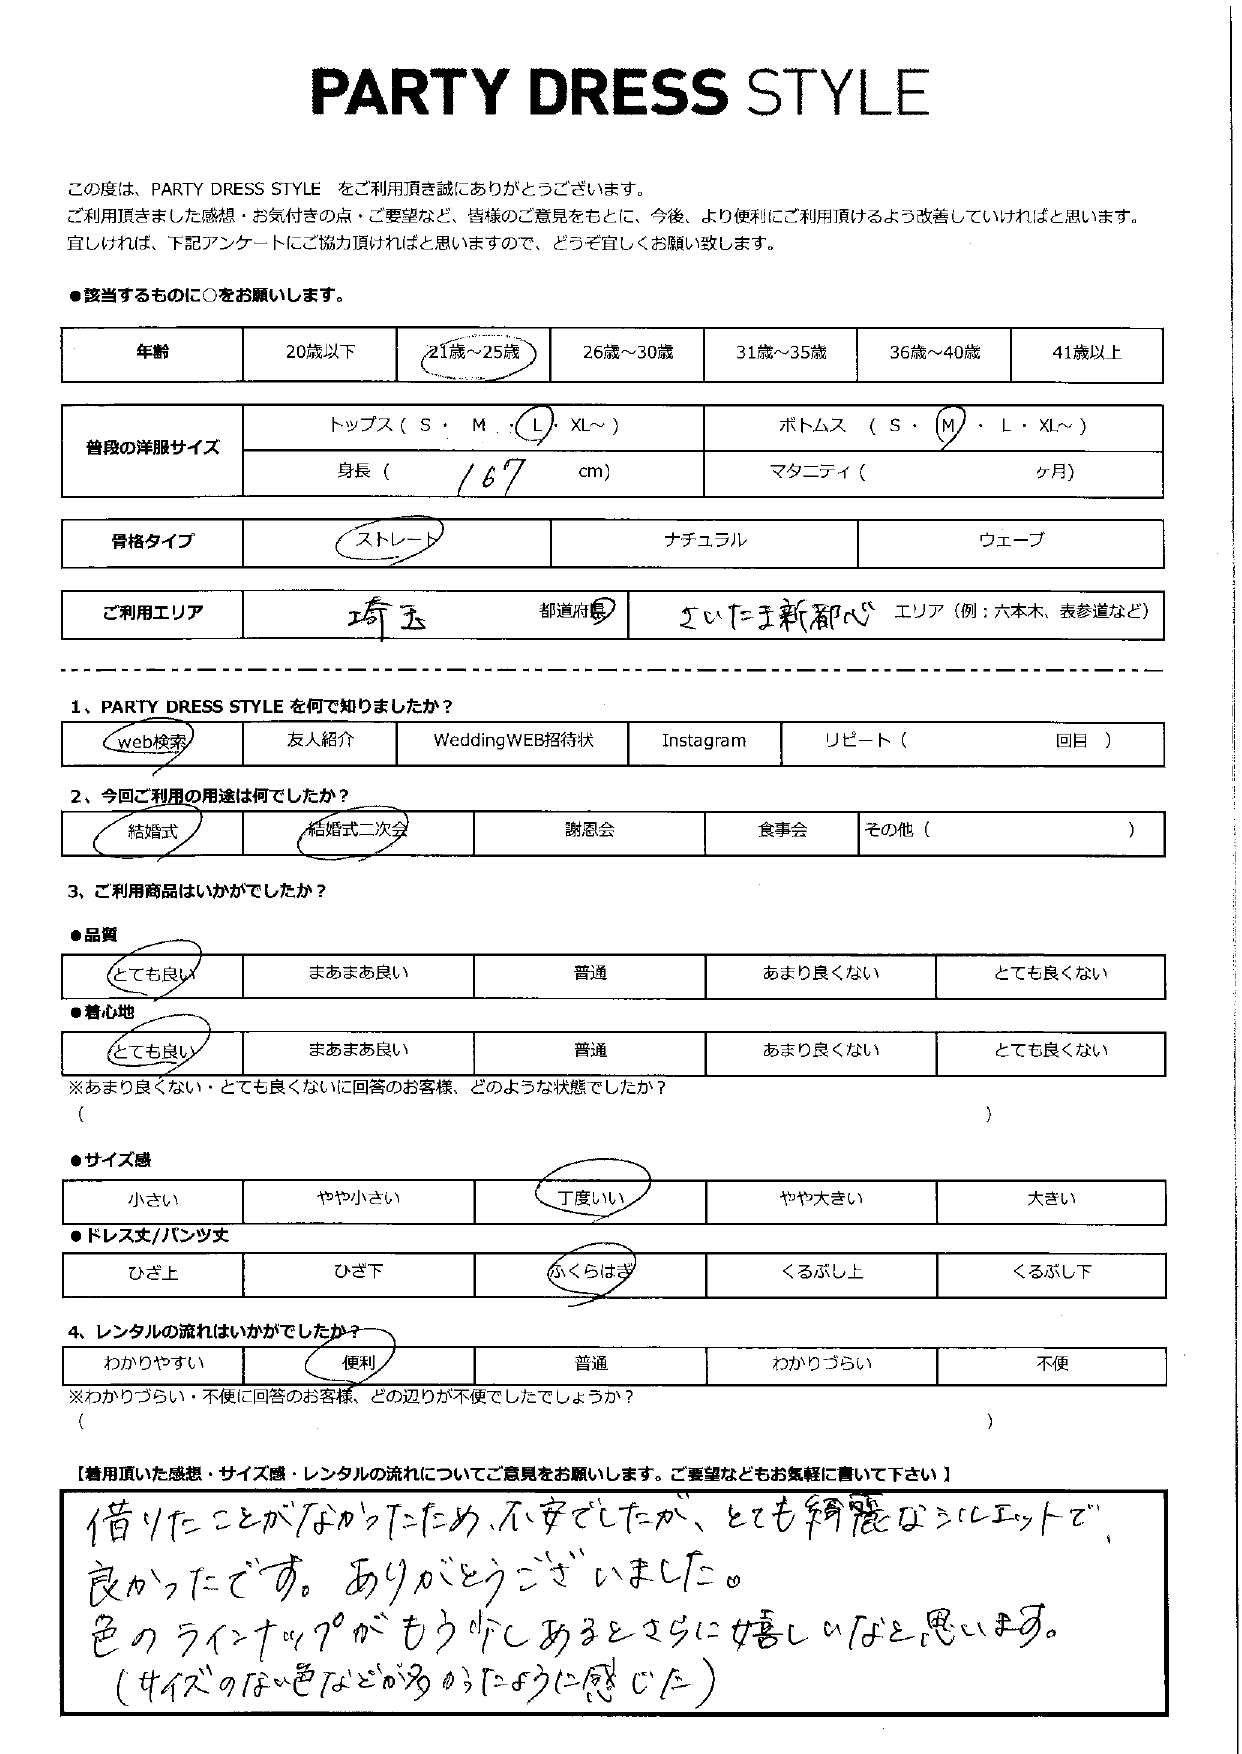 PARTY DRESS STYLE
この度は、PARTY DRESS STYLE をご利用頂き誠にありがとうございます。
ご利用頂きました感想・お気付きの点・ご要望など、皆様のご意見をもとに、今後、より便利にご利用頂けるよう改善していければと思います。
宜しければ、下記アンケートにご協力頂ければと思いますので、どうぞ宜しくお願い致します。
●該当するものに○をお願いします。
年齢 20歳以下 21歳～25歳 26歳～30歳 31歳～35歳 36歳～40歳 41歳以上
普段の洋服サイズ トップス ( S ・ M ・ L ・ XL～ ) ボトムス ( S ・ M ・ L ・ XL～ )
身長 ( 167 cm) マタニティ ( ヶ月)
骨格タイプ ストレート ナチュラル ウェーブ
ご利用エリア 埼玉 都道府県 さいたま新都心 エリア（例；六本木、表参道など）
1、PARTY DRESS STYLE を何で知りましたか？
web検索 友人紹介 WeddingWEB招待状 Instagram リピート ( 回目 )
2、今回ご利用の用途は何でしたか？
結婚式 結婚式二次会 謝恩会 食事会 その他 ( )
3、ご利用商品はいかがでしたか？
●品質
とても良い まあまあ良い 普通 あまり良くない とても良くない
●着心地
とても良い まあまあ良い 普通 あまり良くない とても良くない
※あまり良くない・とても良くないに回答のお客様、どのような状態でしたか？
( )
●サイズ感
小さい やや小さい 丁度いい やや大きい 大きい
●ドレス丈/パンツ丈
ひざ上 ひざ下 ふくらはぎ くるぶし上 くるぶし下
4、レンタルの流れはいかがでしたか？
わかりやすい 便利 普通 わかりづらい 不便
※わかりづらい・不便に回答のお客様、どの辺りが不便でしたでしょうか？
( )
【着用頂いた感想・サイズ感・レンタルの流れについてご意見をお願いします。ご要望などもお気軽に書いて下さい】
借りたことがなかったため、不安でしたが、とても綺麗なシルエットで、
良かったです。ありがとうございました。
色のラインナップがもう少しあるとさらに嬉しいなと思います。
(サイズのない色などが多かったように感じた)